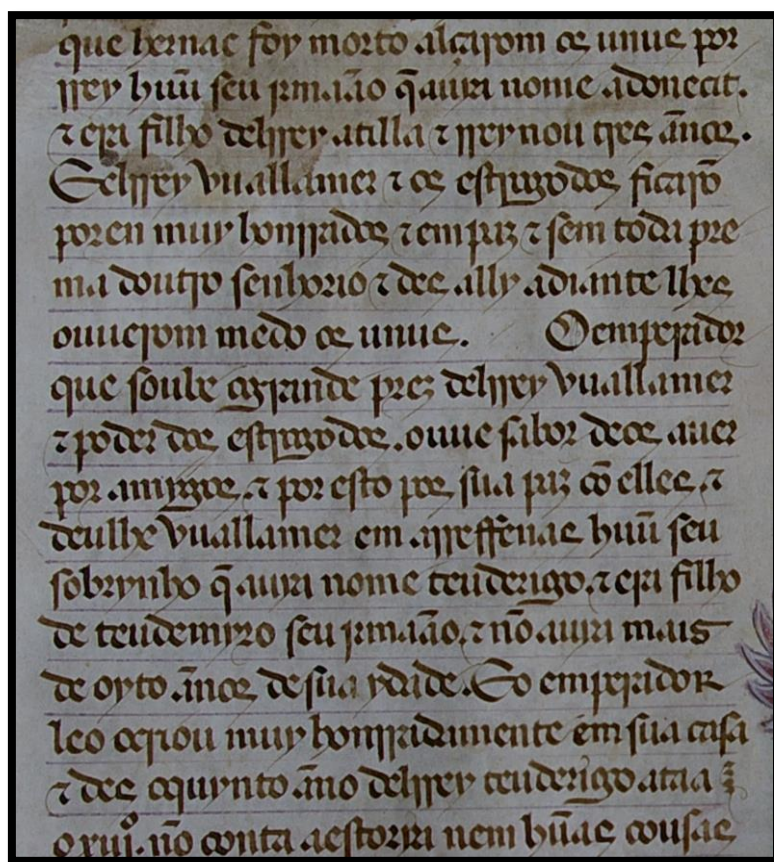 que bernac foy morto alçarom os unus por
rrey huũ seu jrmaão q̃ auja nome adonecit.
⁊ era filho delrrey atilla ⁊ rreynou tres ãnos.
Eelrrey vuallamer ⁊ os estrogodos ficarõ
poren muy honrrados ⁊ em paz ⁊ sem toda pre
ma doutro senhorio ⁊ des ally adiante lhes
ouuerom medo os unus. O emperador
que soube agrande prez delrrey vuallamer
⁊ poder dos estrogodos. ouue sabor deos auer
por amygos. ⁊ por esto pos sua paz cõ elles. ⁊
deulhe vuallamer em arreffẽnas huũ seu
sobrynho q̃ auja nome teuderigo. ⁊ era filho
de teudemyro seu jrmaão. ⁊ nõ auja mais
de oyto ãnos de sua ydade. Eo emperador
leo ocriou muy honrradamente em sua casa
⁊ des oquynto ãno delrrey teuderigo ataa
o xuijº. nõ conta aestoria nem hũas cousas